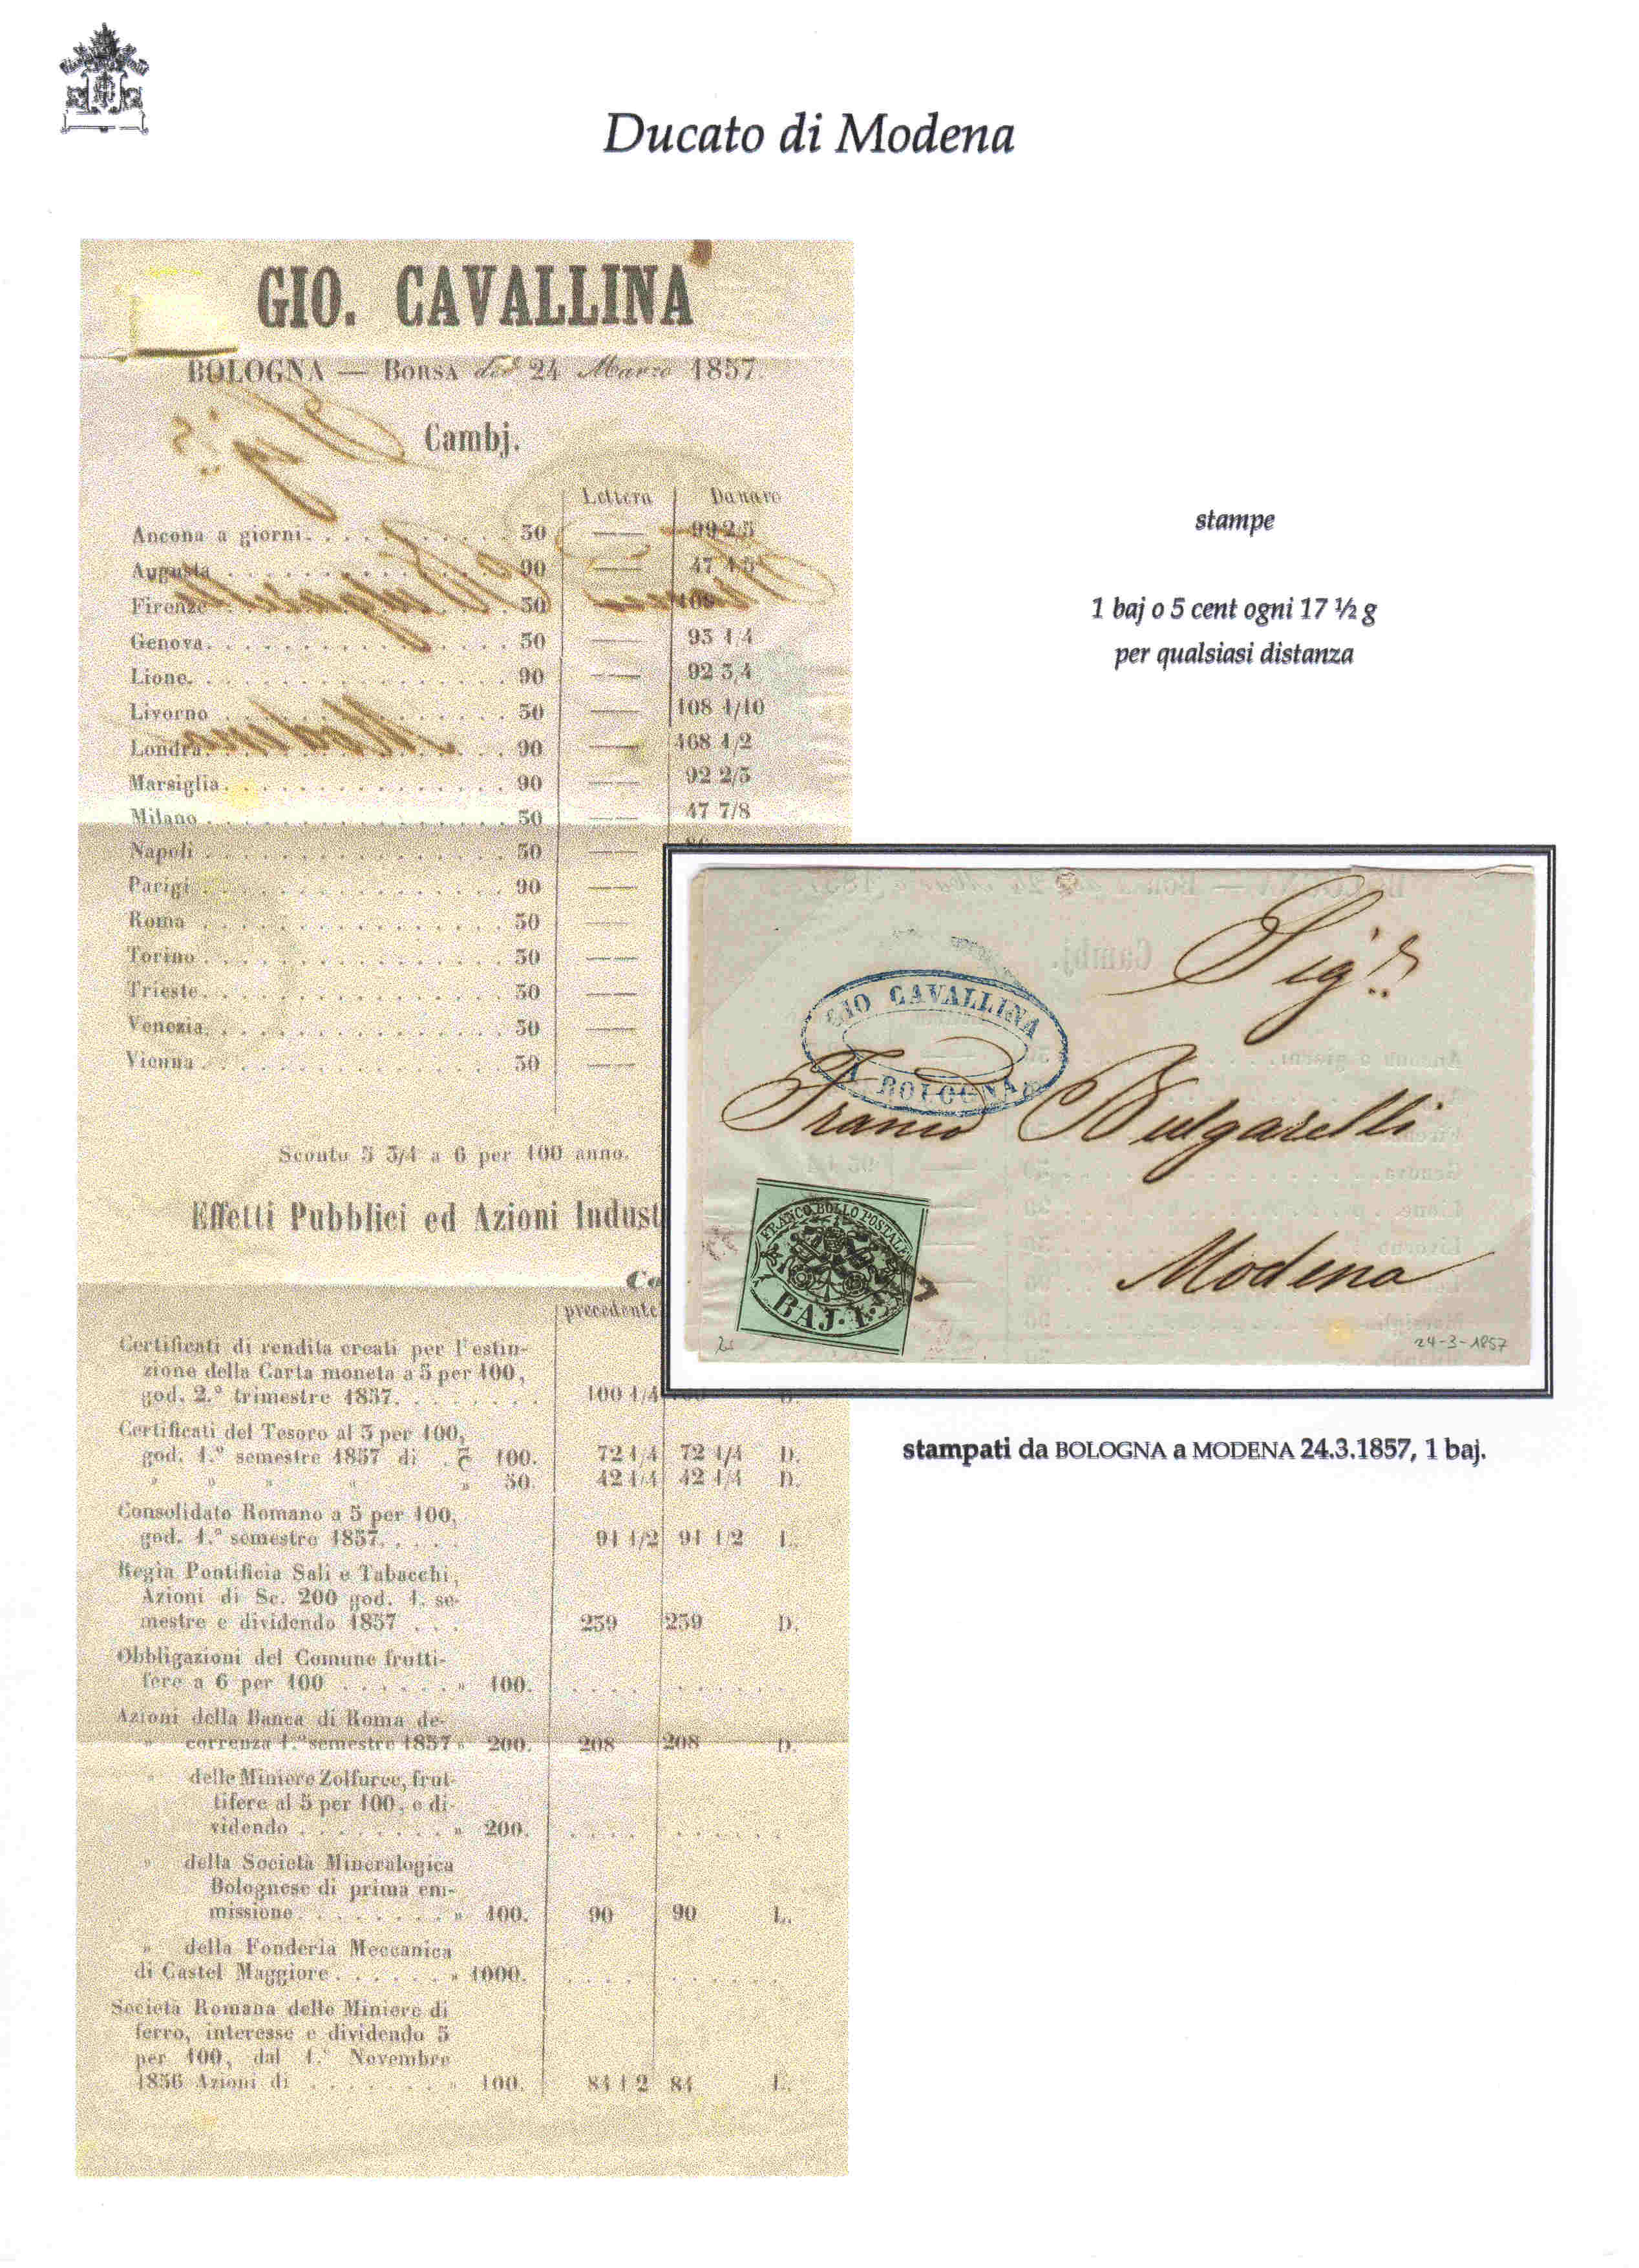 Ducato di Modena
GIO. CAVALLINA
BOLOGNA — BORSA 24 Marzo 1857.
Cambj.
Lettera Danaro
Ancona a giorni. . . . . . . . . . 30 — 99 2/5
Augusta . . . . . . . . . . 90 — 47 4/5
Firenze . . . . . . . . . . 30
Genova. . . . . . . . . . 30 — 93 1/4
Lione. . . . . . . . . . 90 — 92 3/4
Livorno . . . . . . . . . . 30 — 108 1/10
Londra. . . . . . . . . . 90 — 468 1/2
Marsiglia. . . . . . . . . . 90 — 92 2/5
Milano . . . . . . . . . . 30 — 47 7/8
Napoli . . . . . . . . . . 30 —
Parigi . . . . . . . . . . 90 —
Roma . . . . . . . . . . 30 —
Torino . . . . . . . . . . 30 —
Trieste. . . . . . . . . . 30 —
Venezia. . . . . . . . . . 30 —
Vienna . . . . . . . . . . 30 —
Sconto 5 3/4 a 6 per 100 anno.
Effetti Pubblici ed Azioni Indust
Co
precedente
Certificati di rendita creati per l'estin-
zione della Carta moneta a 5 per 100,
god. 2.º trimestre 1857. . . . . . . 100 1/4
Certificati del Tesoro al 5 per 100,
god. 1.º semestre 1857 di . 100. 72 1/4 72 1/4 D.
" " " " " 50. 42 1/4 42 1/4 D.
Consolidato Romano a 5 per 100,
god. 1.º semestre 1857. . . . . 91 1/2 91 1/2 L.
Regia Pontificia Sali e Tabacchi,
Azioni di Sc. 200 god. 1. se-
mestre e dividendo 1857 . . . 259 259 D.
Obbligazioni del Comune frutti-
fere a 6 per 100 . . . . . . " 100. . . . . . . . . . .
Azioni della Banca di Roma de-
" correnza 1.º semestre 1857 " 200. 208 208 D.
" delle Miniere Zolfuree, frut-
tifere al 5 per 100, e di-
videndo . . . . . . . . " 200. . . . . . . . . . .
" della Società Mineralogica
Bolognese di prima em-
missione. . . . . . . . " 100. 90 90 L.
" della Fonderia Meccanica
di Castel Maggiore. . . . . . " 1000. . . . . . . . . . .
Società Romana delle Miniere di
ferro, interesse e dividendo 5
per 100, dal 1.º Novembre
1856 Azioni di . . . . . . . . " 100. 84 1 2 84 L.
stampe
1 baj o 5 cent ogni 17 ½ g
per qualsiasi distanza
Sig.r
GIO CAVALLINA
BOLOGNA
Franco Bulgarelli
Modena
FRANCO BOLLO POSTALE
BAJ. 1.
24-3-1857
stampati da BOLOGNA a MODENA 24.3.1857, 1 baj.